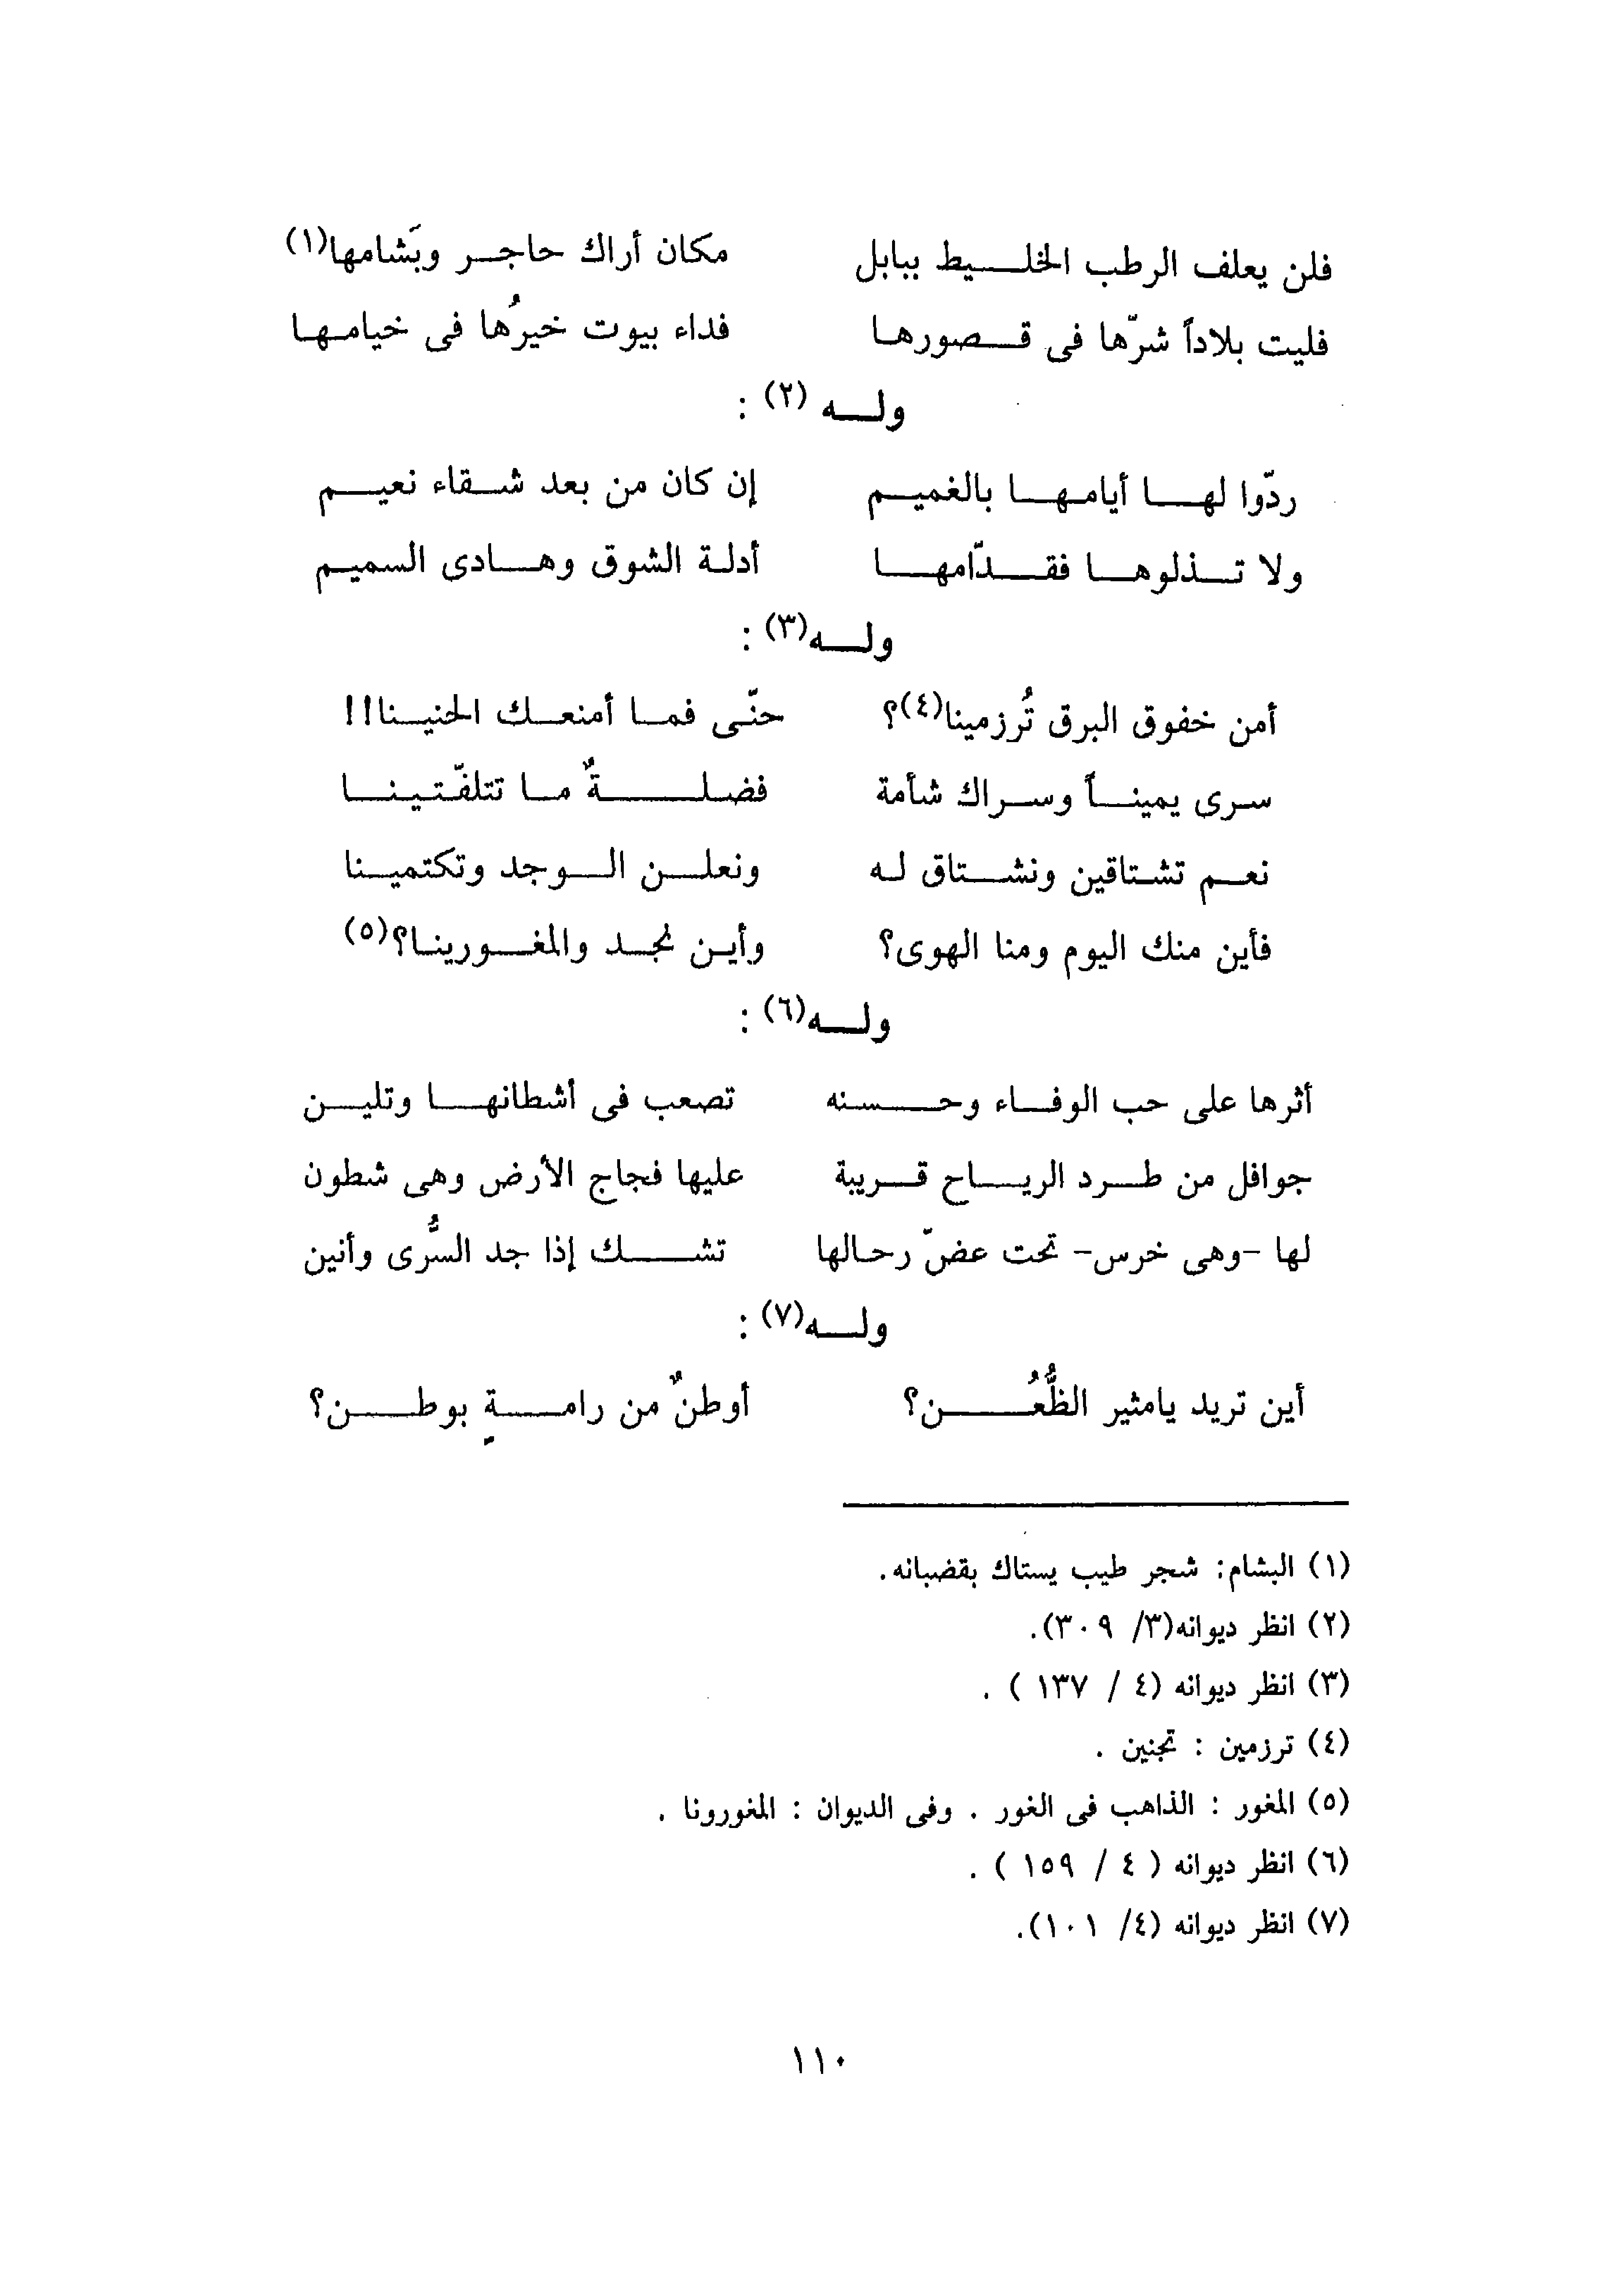 فلن يعلف الرطب الخليط ببابل مكان أراك حاجر وبَشامها(١)
فليت بلاداً شرّها فى قصورها فداء بيوت خيرُها فى خيامها
وله (٢) :
ردّوا لها أيامها بالغميم إن كان من بعد شقاء نعيم
ولا تذلوها فقدّامها أدلة الشوق وهادى السميم
وله(٣) :
أمن خفوق البرق تُرزمينا(٤)؟ حنّى فما أمنعك الحنينا!!
سرى يميناً وسراك شأمة فضلةٌ ما تتلفّتينا
نعم تشتاقين ونشتاق له ونعلن الوجد وتكتمينا
فأين منك اليوم ومنا الهوى؟ وأين نجد والمغورينا؟(٥)
وله(٦) :
أثرها على حب الوفاء وحسنه تصعب فى أشطانها وتلين
جوافل من طرد الرياح قريبة عليها فجاج الأرض وهى شطون
لها -وهى خرس- تحت عضّ رحالها تشك إذا جد السُّرى وأنين
وله(٧) :
أين تريد يامثير الظُّعُن؟ أوطنٌ من رامةٍ بوطن؟
(١) البشام: شجر طيب يستاك بقضبانه.
(٢) انظر ديوانه(٣/ ٣٠٩).
(٣) انظر ديوانه (٤ / ١٣٧ ) .
(٤) ترزمين : تجنين .
(٥) المغور : الذاهب فى الغور . وفى الديوان : المغورونا .
(٦) انظر ديوانه ( ٤ / ١٥٩ ) .
(٧) انظر ديوانه (٤/ ١٠١).
١١٠